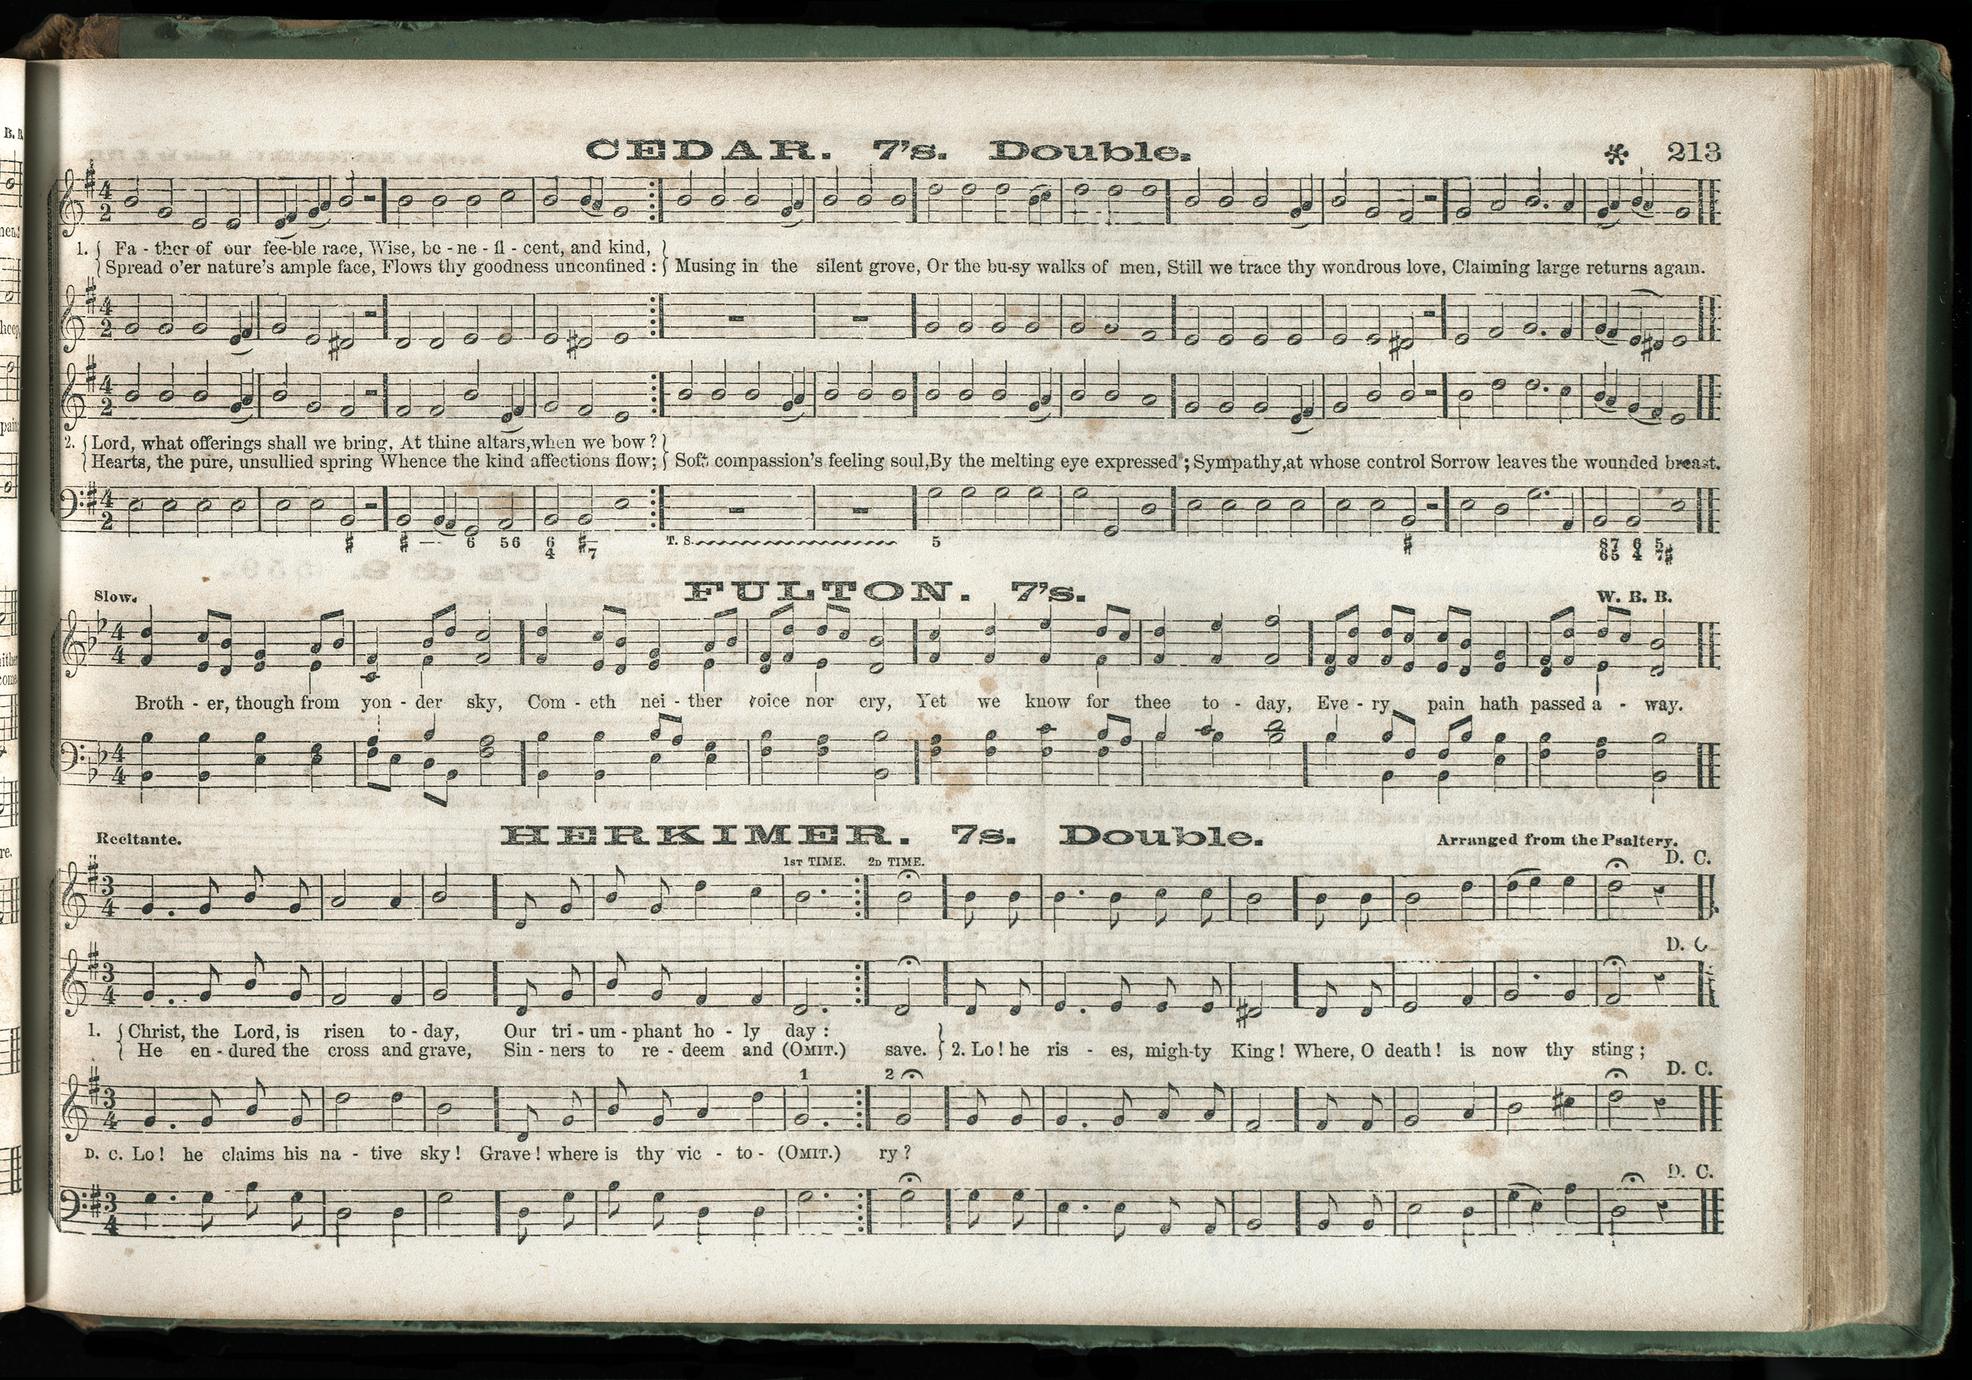 CEDAR. 7's. Double. 213
1. { Fa - ther of our fee-ble race, Wise, be - ne - fi - cent, and kind, }
{ Spread o'er nature's ample face, Flows thy goodness unconfined : } Musing in the silent grove, Or the bu-sy walks of men, Still we trace thy wondrous love, Claiming large returns again.
2. { Lord, what offerings shall we bring, At thine altars, when we bow ? }
{ Hearts, the pure, unsullied spring Whence the kind affections flow; } Soft compassion's feeling soul, By the melting eye expressed ; Sympathy, at whose control Sorrow leaves the wounded breast.
6 56 6 4 7 T. S. 5 87 65 6 4 5 7
FULTON. 7's.
Slow. W. B. B.
Broth - er, though from yon - der sky, Com - eth nei - ther voice nor cry, Yet we know for thee to - day, Eve - ry pain hath passed a - way.
HERKIMER. 7s. Double.
Recitante. Arranged from the Psaltery.
1ST TIME. 2D TIME. D. C.
D. C.
1. { Christ, the Lord, is risen to - day, Our tri - um - phant ho - ly day : }
{ He en - dured the cross and grave, Sin - ners to re - deem and (OMIT.) save. } 2. Lo! he ris - es, migh-ty King! Where, O death! is now thy sting ;
1 2 D. C.
D. C. Lo! he claims his na - tive sky! Grave! where is thy vic - to - (OMIT.) ry ?
D. C.